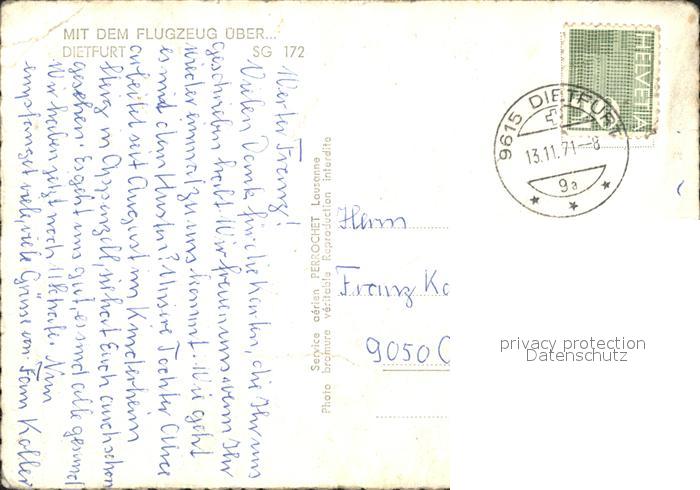 MIT DEM FLUGZEUG ÜBER...
DIETFURT SG 172
Werter Franz!
Vielen Dank für die Karten, die Ihr uns
geschrieben habt. Wir freuen uns wenn Ihr
wieder einmal zu uns kommt. Wie geht
es mit dem Husten? Unsere Tochter Alice
arbeitet seit August im Kinderheim
Steig in Appenzell, sie hat Euch auch schon
gesehen. Es geht uns gut, es sind alle gesund
Wir haben jetzt noch 11 Nun
empfangt viele, viele Grüsse von Fam Koller
Service aérien PERROCHET Lausanne
Photo bromure véritable Reproduction interdite
HELVETIA
9615 DIETFURT
13.11.71-8
9a
Herrn
Franz Ko
9050
privacy protection
Datenschutz